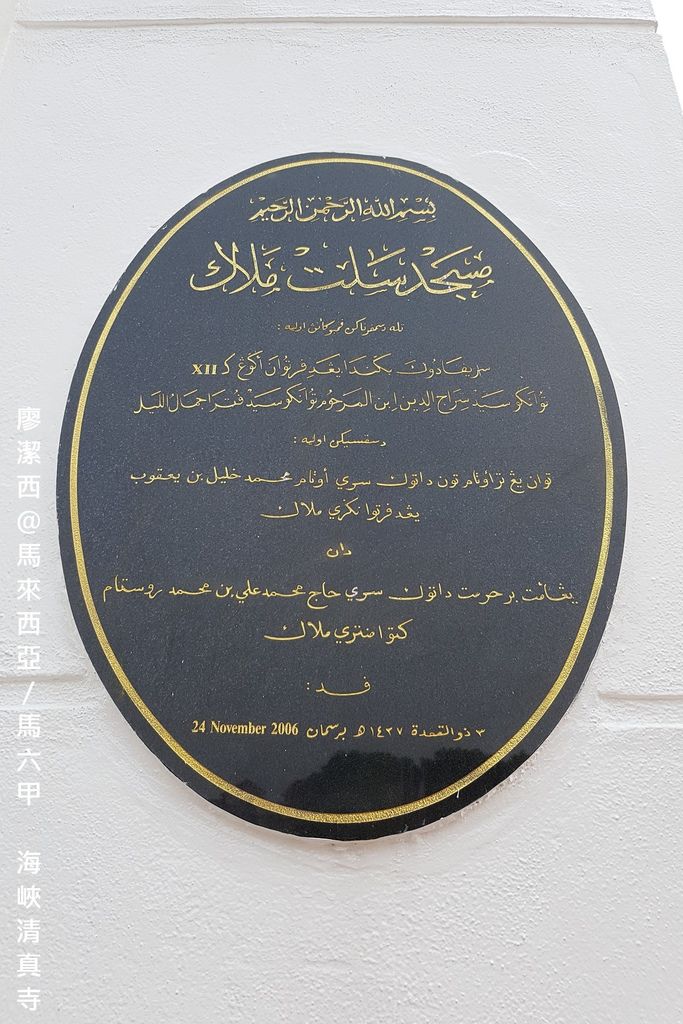 بِسْمِ اللهِ الرَّحْمٰنِ الرَّحِيْمِ
مَسْجِدْ سَلَتْ مَلَاك
تله دسمڤرناكن ڤمبوكاءن اوليه :
سري ڤادوك بݢيندا يڠدڤرتوان اݢوڠ كـ XII
توانكو سيد سراج الدين ابن المرحوم توانكو سيد ڤوترا جمال الليل
دسقسيكن اوليه :
توان يڠ تراوتام تون داتوق سري أوتام محمد خليل بن يعقوب
يڠدڤرتوا نݢري ملاك
دان
يڠ أمت برحرمت داتوق سري حاج محمد علي بن محمد روستام
كتوا منتري ملاك
ڤد :
٣ ذوالقعدة ١٤٢٧هـ برسمان 24 November 2006
廖潔西@馬來西亞/馬六甲 海峽清真寺